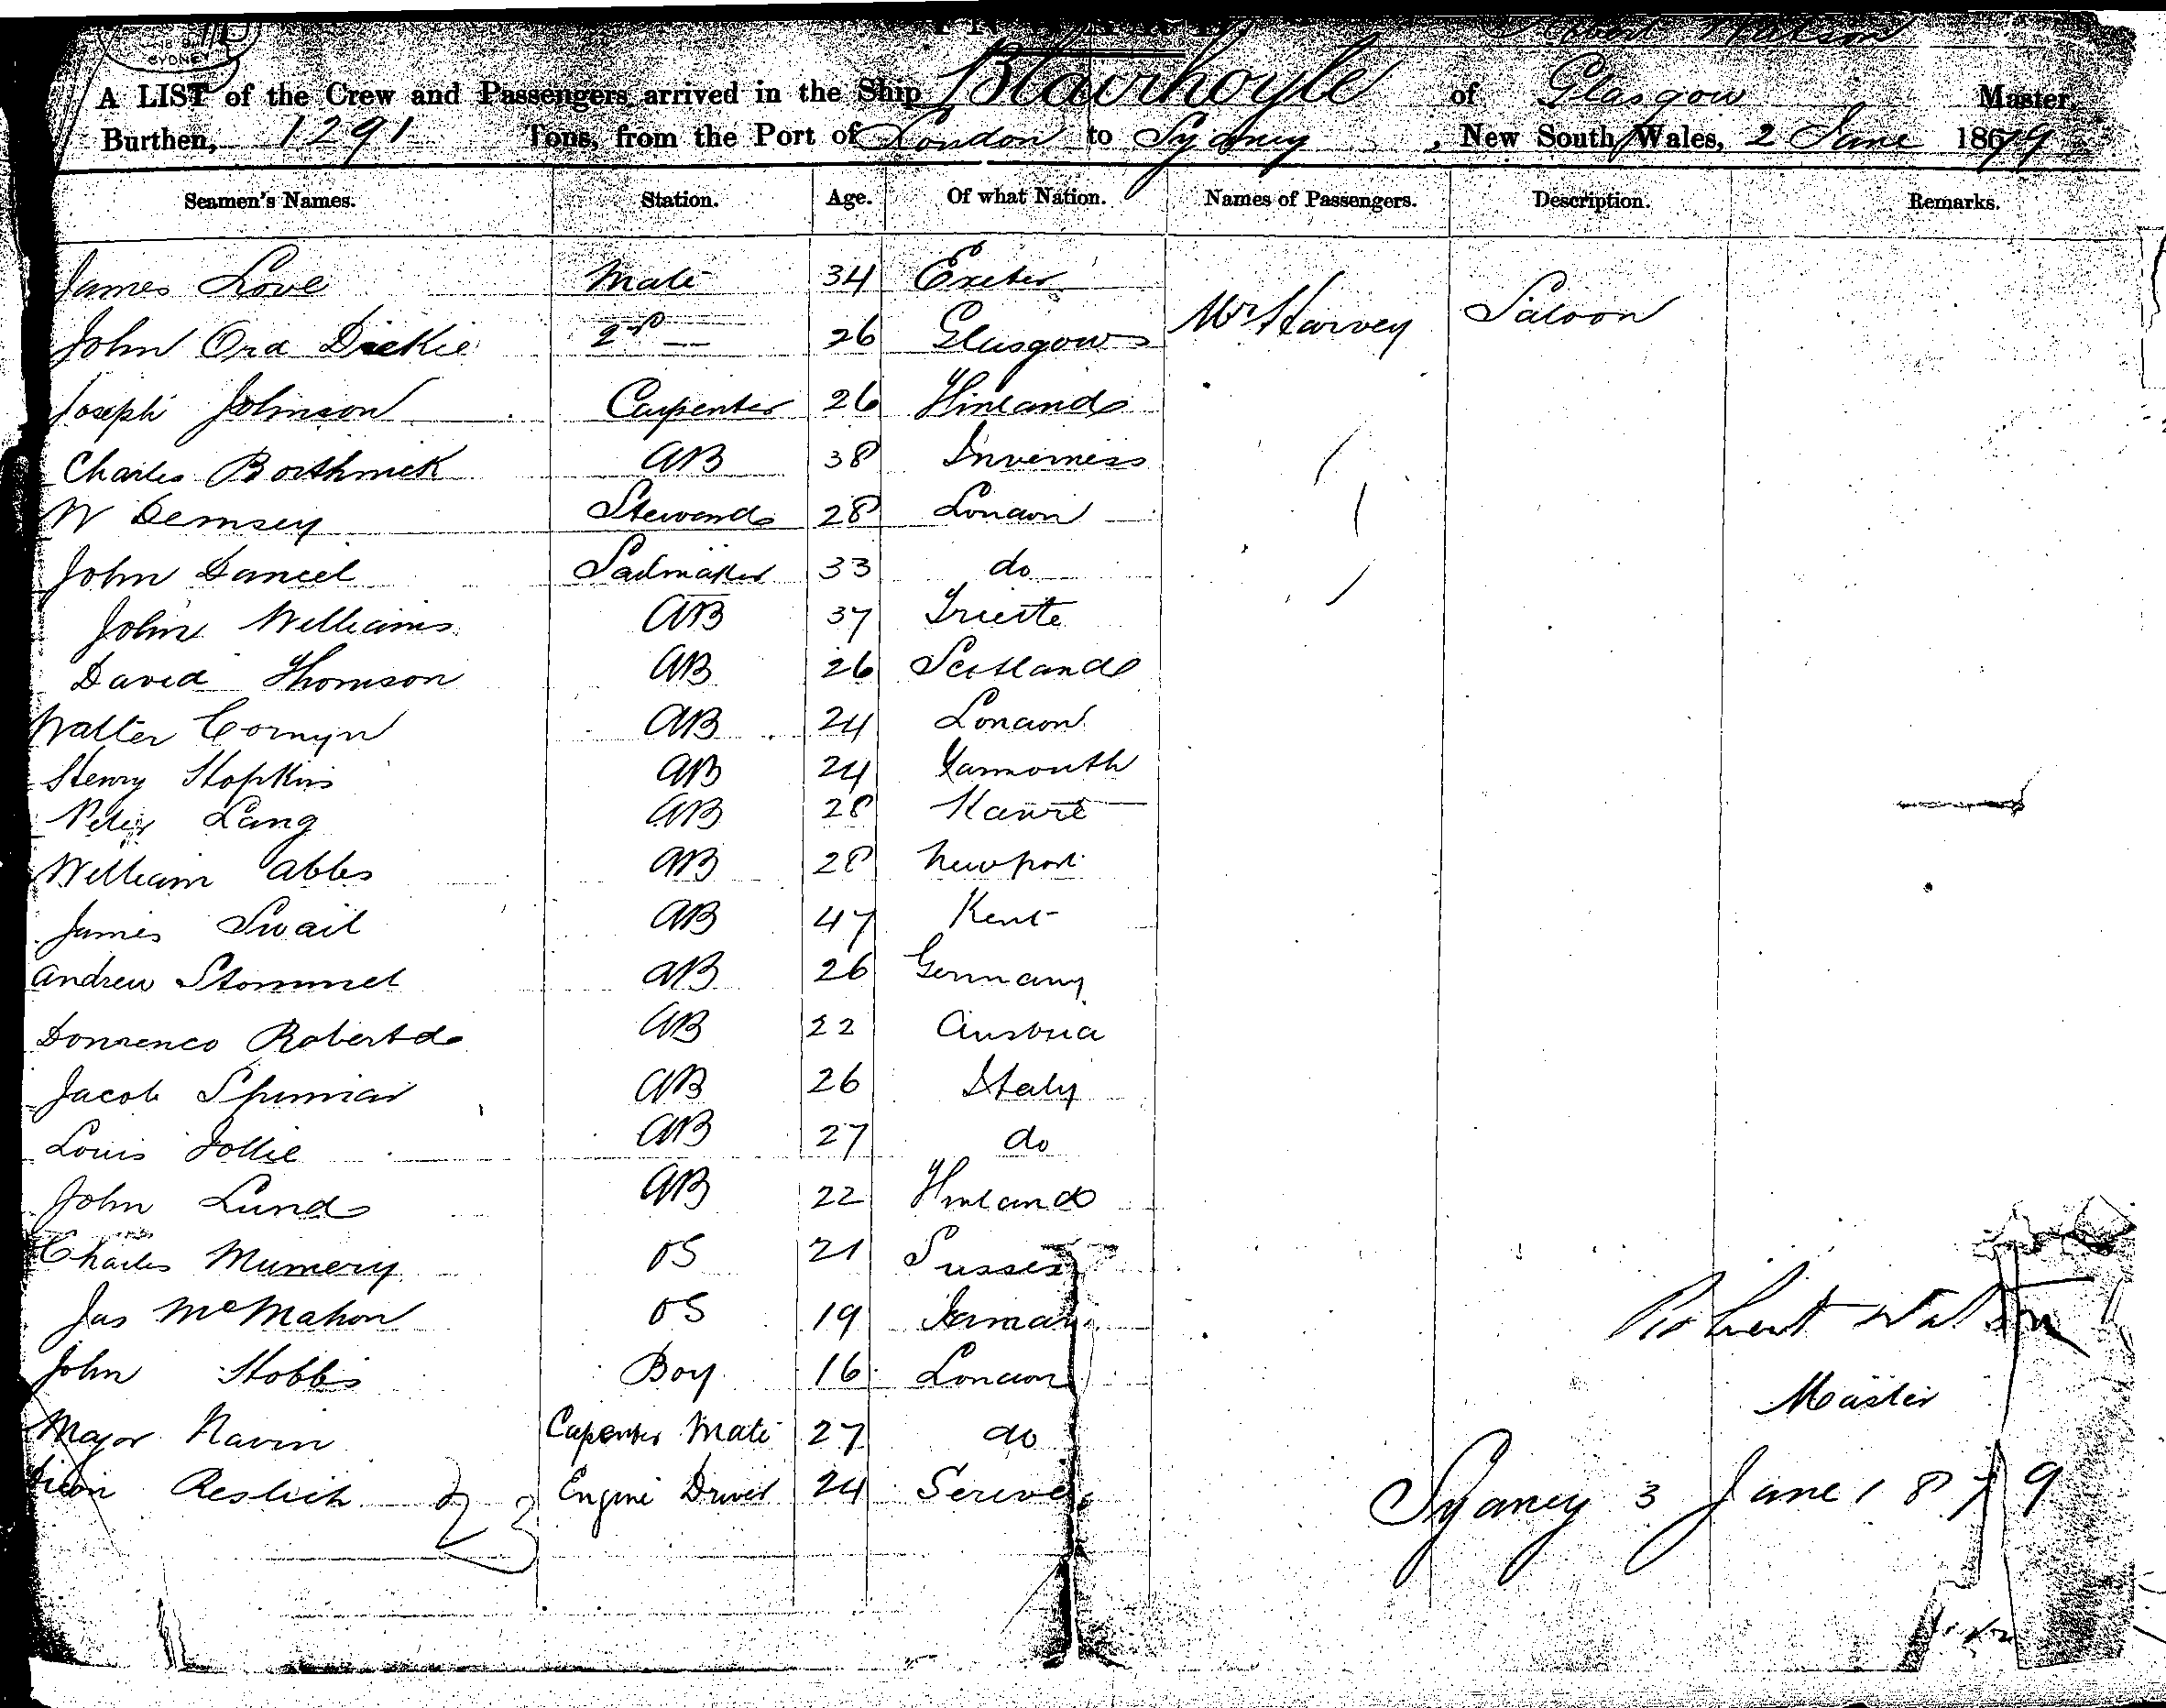 SYDNEY
Robert Watson
A LIST of the Crew and Passengers arrived in the Ship Blairhoyle of Glasgow Master,
Burthen, 1291 Tons, from the Port of London to Sydney, New South Wales, 2 June 1879
Seamen's Names. Station. Age. Of what Nation. Names of Passengers. Description. Remarks.
James Love Mate 34 Exeter
Mr Harvey Saloon
John Ord Dickie 2nd — 26 Glasgow
Joseph Johnson Carpenter 26 Finland
Charles Borthwick AB 38 Inverness
W Demsey Steward 28 London
John Daniel Sailmaker 33 do
John Williams AB 37 Trieste
David Thomson AB 26 Scotland
Walter Cornyn AB 24 London
Henry Hopkins AB 24 Yarmouth
Peter Lang AB 28 Havre
William Abbs AB 28 Newport
James Swail AB 47 Kent
Andrew Stommel AB 26 Germany
AB 22 Austria
Jacob AB 26 Italy
Louis Jollie AB 27 do
John Lund AB 22 Finland
Charles Mumery OS 21 Sussex
Jas McMahon OS 19
John Hobbs Boy 16 London
Major Navin Capenter Mate 27 do
Engine Driver 24
23
Robert Watson
Master
Sydney 3 June 1879